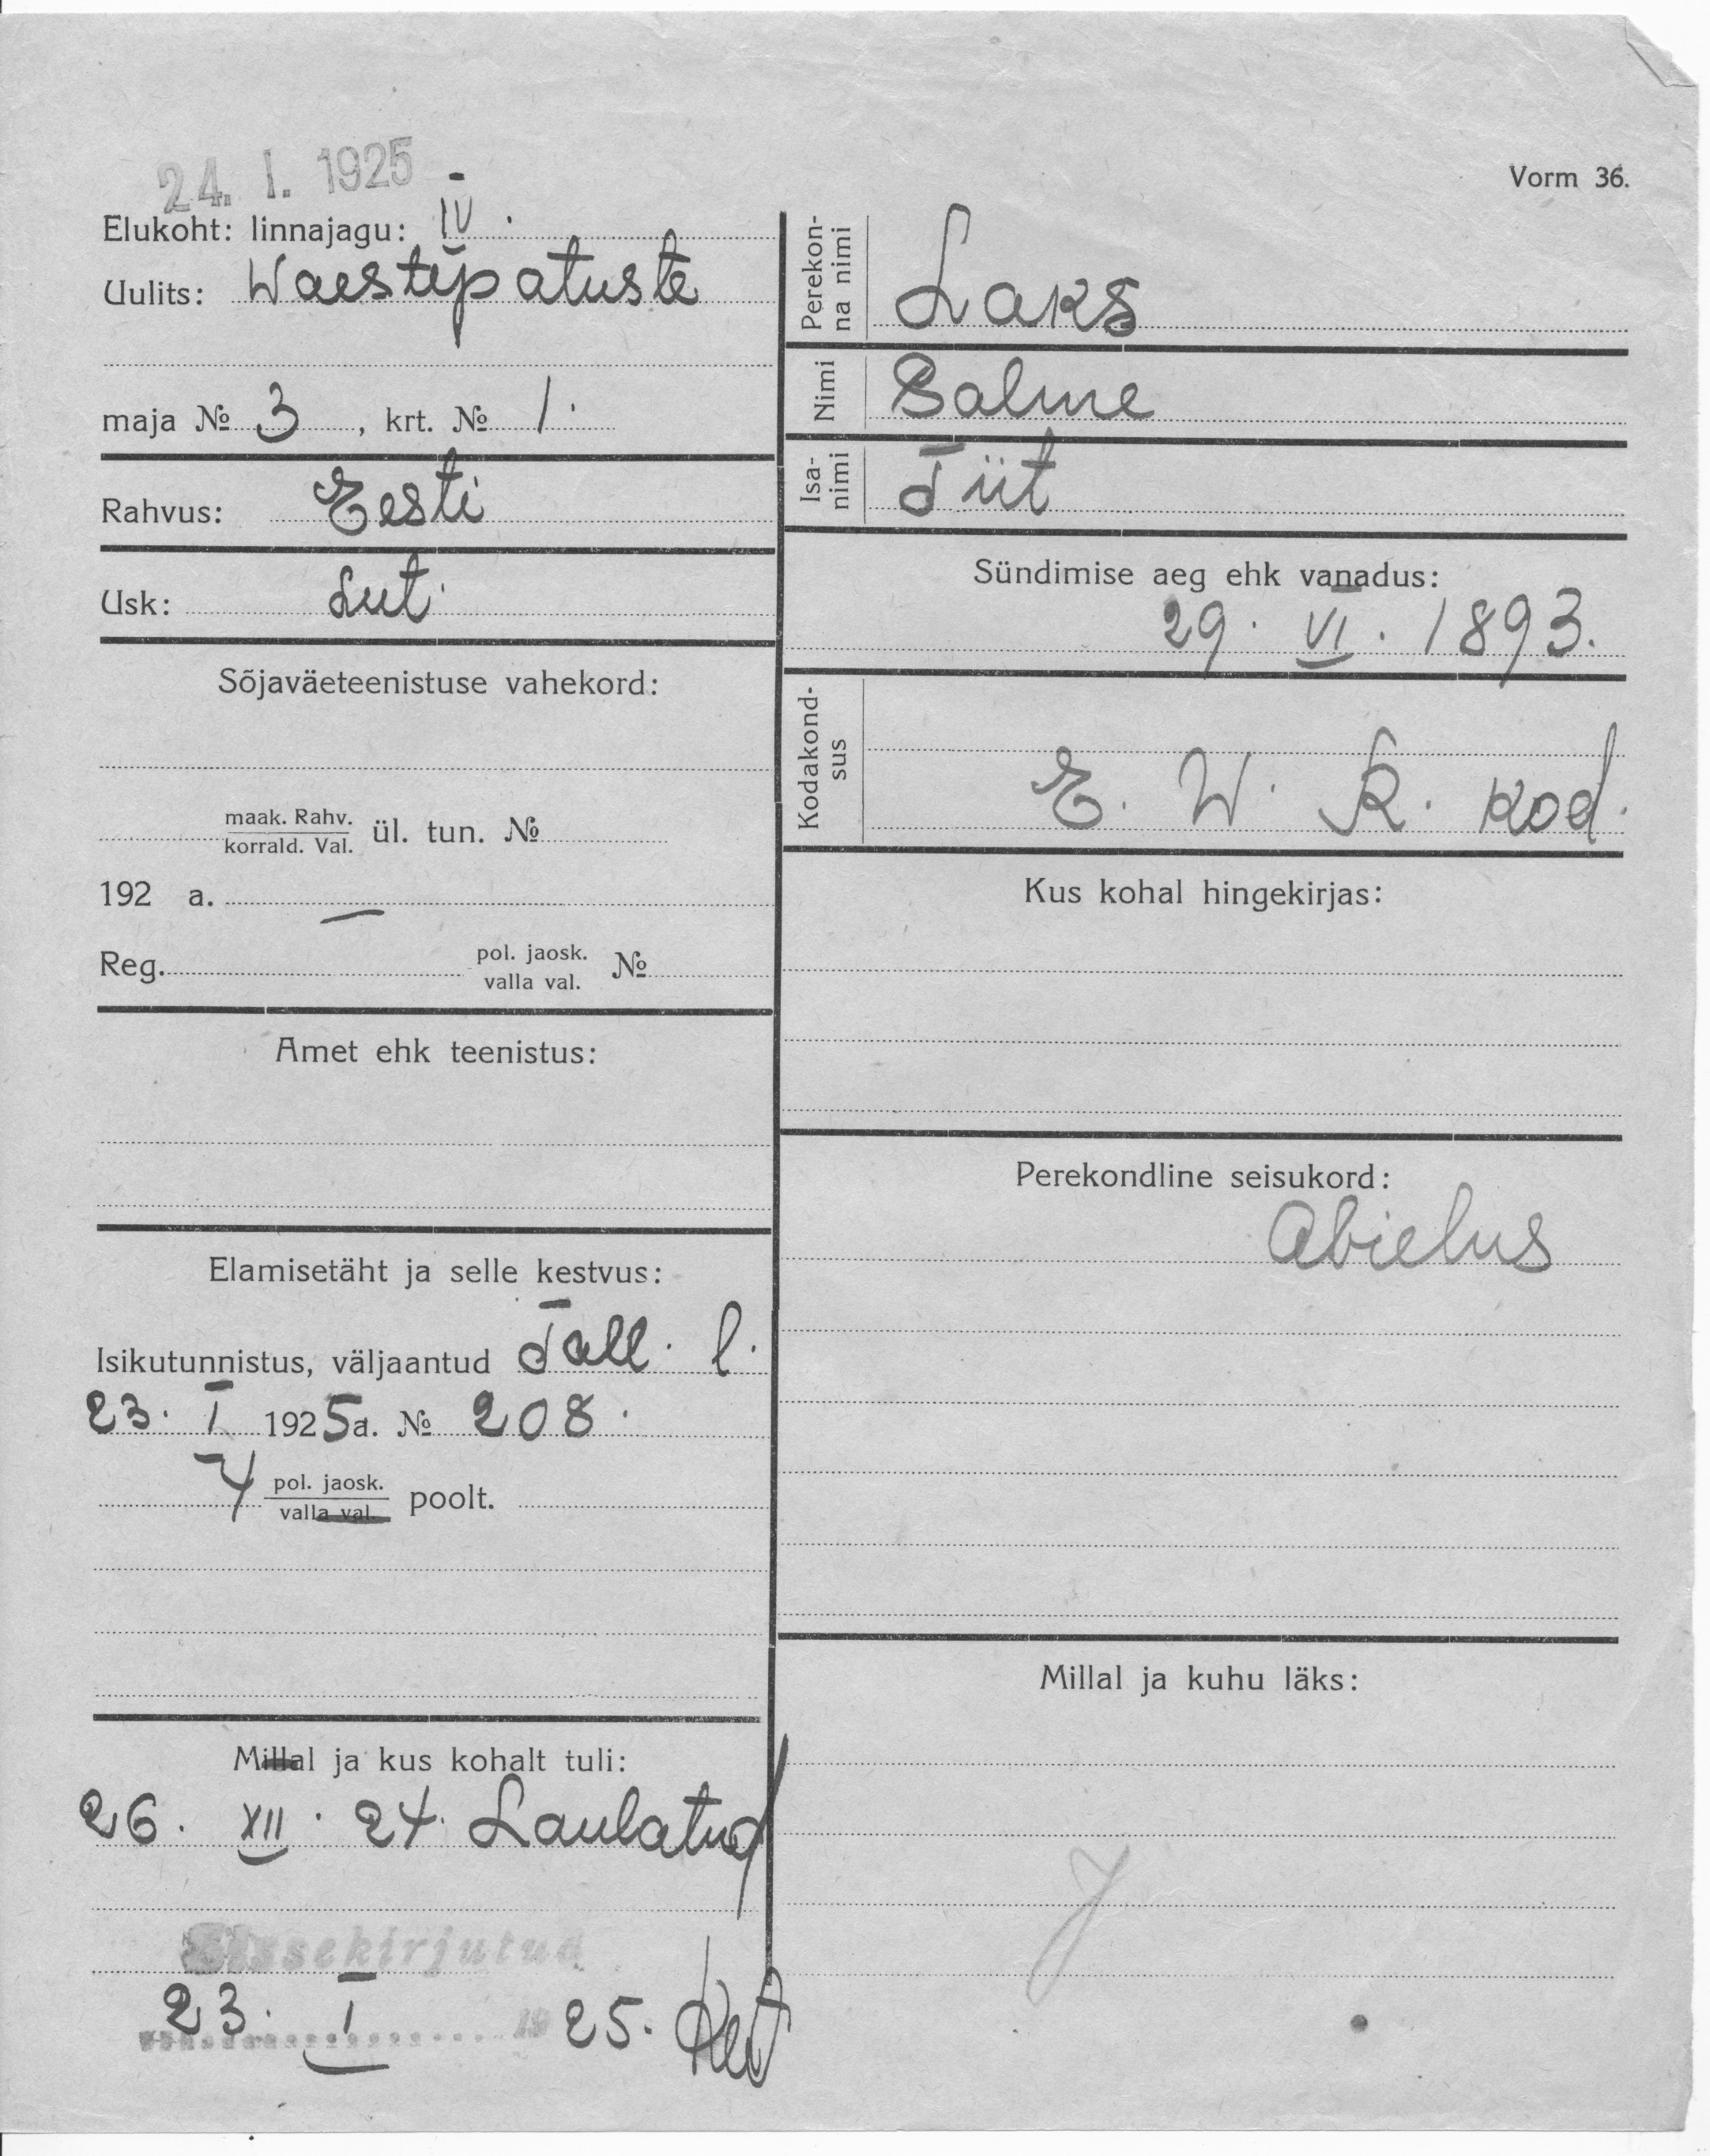 24. I. 1925
Vorm 36.
Elukoht: linnajagu: IV.
Uulits: Waestepatuste
maja № 3, krt. № 1.
Rahvus: Eesti
Usk: Lut.
Sõjaväeteenistuse vahekord:
maak. Rahv.
korrald. Val. ül. tun. №
192 a. —
Reg. pol. jaosk.
valla val. №
Amet ehk teenistus:
Elamisetäht ja selle kestvus:
Isikutunnistus, väljaantud Tall. l.
23. I 1925 a. № 208.
4 pol. jaosk.
valla val. poolt.
Millal ja kus kohalt tuli:
26. XII. 24. Laulatud
Sissekirjutud
23. I 1925.
Perekon-
na nimi Laks
Nimi Salme
Isa-
nimi Tiit
Sündimise aeg ehk vanadus:
29. VI. 1893.
Kodakond-
sus E. W. R. kod.
Kus kohal hingekirjas:
Perekondline seisukord:
Abielus
Millal ja kuhu läks: